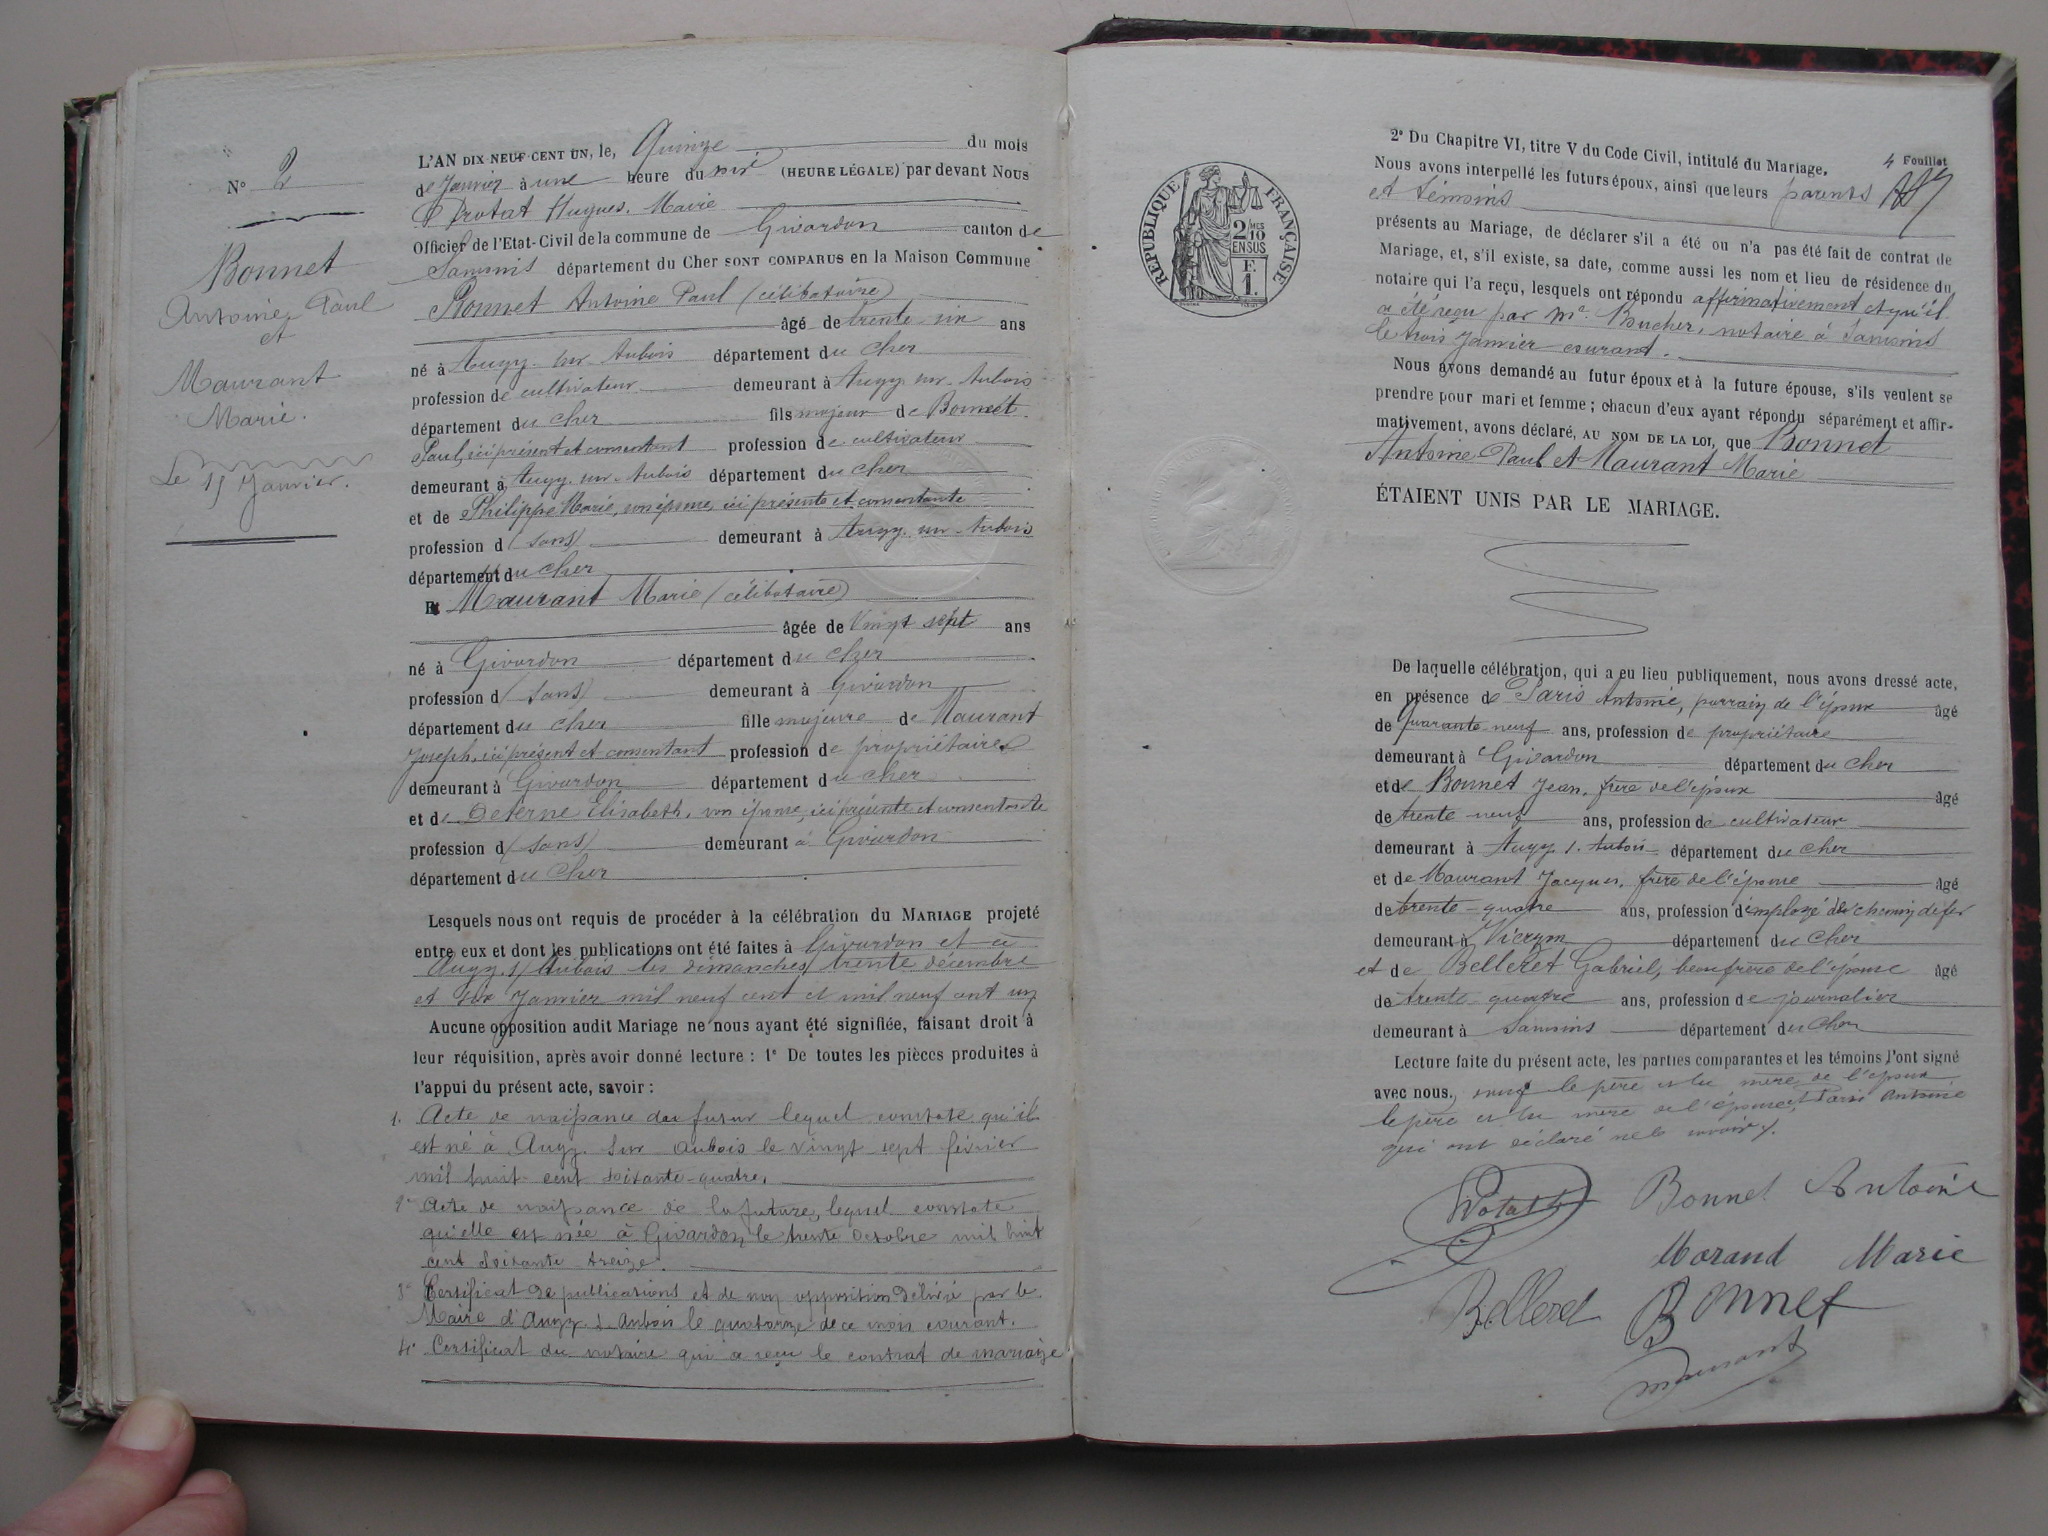 N° 2
Bonnet
Antoine Paul
et
Maurant
Marie.
Le 15 Janvier.
L'AN DIX NEUF CENT UN, le, Quinze du mois
de Janvier à une heure du soir (HEURE LÉGALE) par devant Nous
Protat Hugues, Maire
Officier de l'Etat-Civil de la commune de Givardon canton de
Sancoins département du Cher SONT COMPARUS en la Maison Commune
Bonnet Antoine Paul (célibataire)
âgé de trente six ans
né à Augy-sur-Aubois département du Cher
profession de cultivateur demeurant à Augy-sur-Aubois
département du Cher fils majeur de Bonnet
Paul, ici présent et consentant profession de cultivateur
demeurant à Augy-sur-Aubois département du Cher
et de Philippe Marie, son épouse, ici présente et consentante
profession d (sans) demeurant à Augy-sur-Aubois
département du Cher
Et Maurant Marie (célibataire)
âgée de Vingt sept ans
né à Givardon département du Cher
profession d (sans) demeurant à Givardon
département du Cher fille majeure de Maurant
Joseph, ici présent et consentant profession de propriétaire
demeurant à Givardon département du Cher
et de Deterne Elisabeth, son épouse, ici présente et consentante
profession d (sans) demeurant à Givardon
département du Cher
Lesquels nous ont requis de procéder à la célébration du MARIAGE projeté
entre eux et dont les publications ont été faites à Givardon et à
Augy s/ Aubois les dimanches trente décembre
et six Janvier mil neuf cent et mil neuf cent un
Aucune opposition audit Mariage ne nous ayant été signifiée, faisant droit à
leur réquisition, après avoir donné lecture : 1° De toutes les pièces produites à
l'appui du présent acte, savoir :
1. Acte de naissance du futur lequel constate qu'il
est né à Augy sur Aubois le vingt sept février
mil huit cent soixante-quatre.
2° Acte de naissance de la future, lequel constate
qu'elle est née à Givardon, le trente Octobre mil huit
cent soixante treize.
3° Certificat de publications et de non opposition délivré par le
Maire d'Augy s. Aubois le quatorze de ce mois courant.
4° Certificat du notaire qui a reçu le contrat de mariage
RÉPUBLIQUE FRANÇAISE
2/MES
10
EN SUS
F.
1.
2° Du Chapitre VI, titre V du Code Civil, intitulé du Mariage.
4 Feuillet
Nous avons interpellé les futurs époux, ainsi que leurs parents
et témoins
présents au Mariage, de déclarer s'il a été ou n'a pas été fait de contrat de
Mariage, et, s'il existe, sa date, comme aussi les nom et lieu de résidence du
notaire qui l'a reçu, lesquels ont répondu affirmativement et qu'il
a été reçu par Me. Boucher, notaire à Sancoins
le trois Janvier courant.
Nous avons demandé au futur époux et à la future épouse, s'ils veulent se
prendre pour mari et femme ; chacun d'eux ayant répondu séparément et affir-
mativement, avons déclaré, AU NOM DE LA LOI, que Bonnet
Antoine Paul et Maurant Marie
ÉTAIENT UNIS PAR LE MARIAGE.
De laquelle célébration, qui a eu lieu publiquement, nous avons dressé acte,
en présence de Paris Antoine, parrain de l'époux âgé
de quarante-neuf ans, profession de propriétaire
demeurant à Givardon département du Cher
et de Bonnet Jean, frère de l'époux âgé
de trente neuf ans, profession de cultivateur
demeurant à Augy s. Aubois département du Cher
et de Maurant Jacques, frère de l'épouse âgé
de trente-quatre ans, profession d'employé de chemin de fer
demeurant à Vierzon département du Cher
et de Belleret Gabriel, beau frère de l'épouse âgé
de trente-quatre ans, profession de journalier
demeurant à Sancoins département du Cher
Lecture faite du présent acte, les parties comparantes et les témoins l'ont signé
avec nous, sauf le père et la mère de l'époux
le père et la mère de l'épouse et Paris Antoine
qui ont déclaré ne le savoir.
Protat Bonnet Antoine
Morand Marie
Belleret Bonnet
Maurant